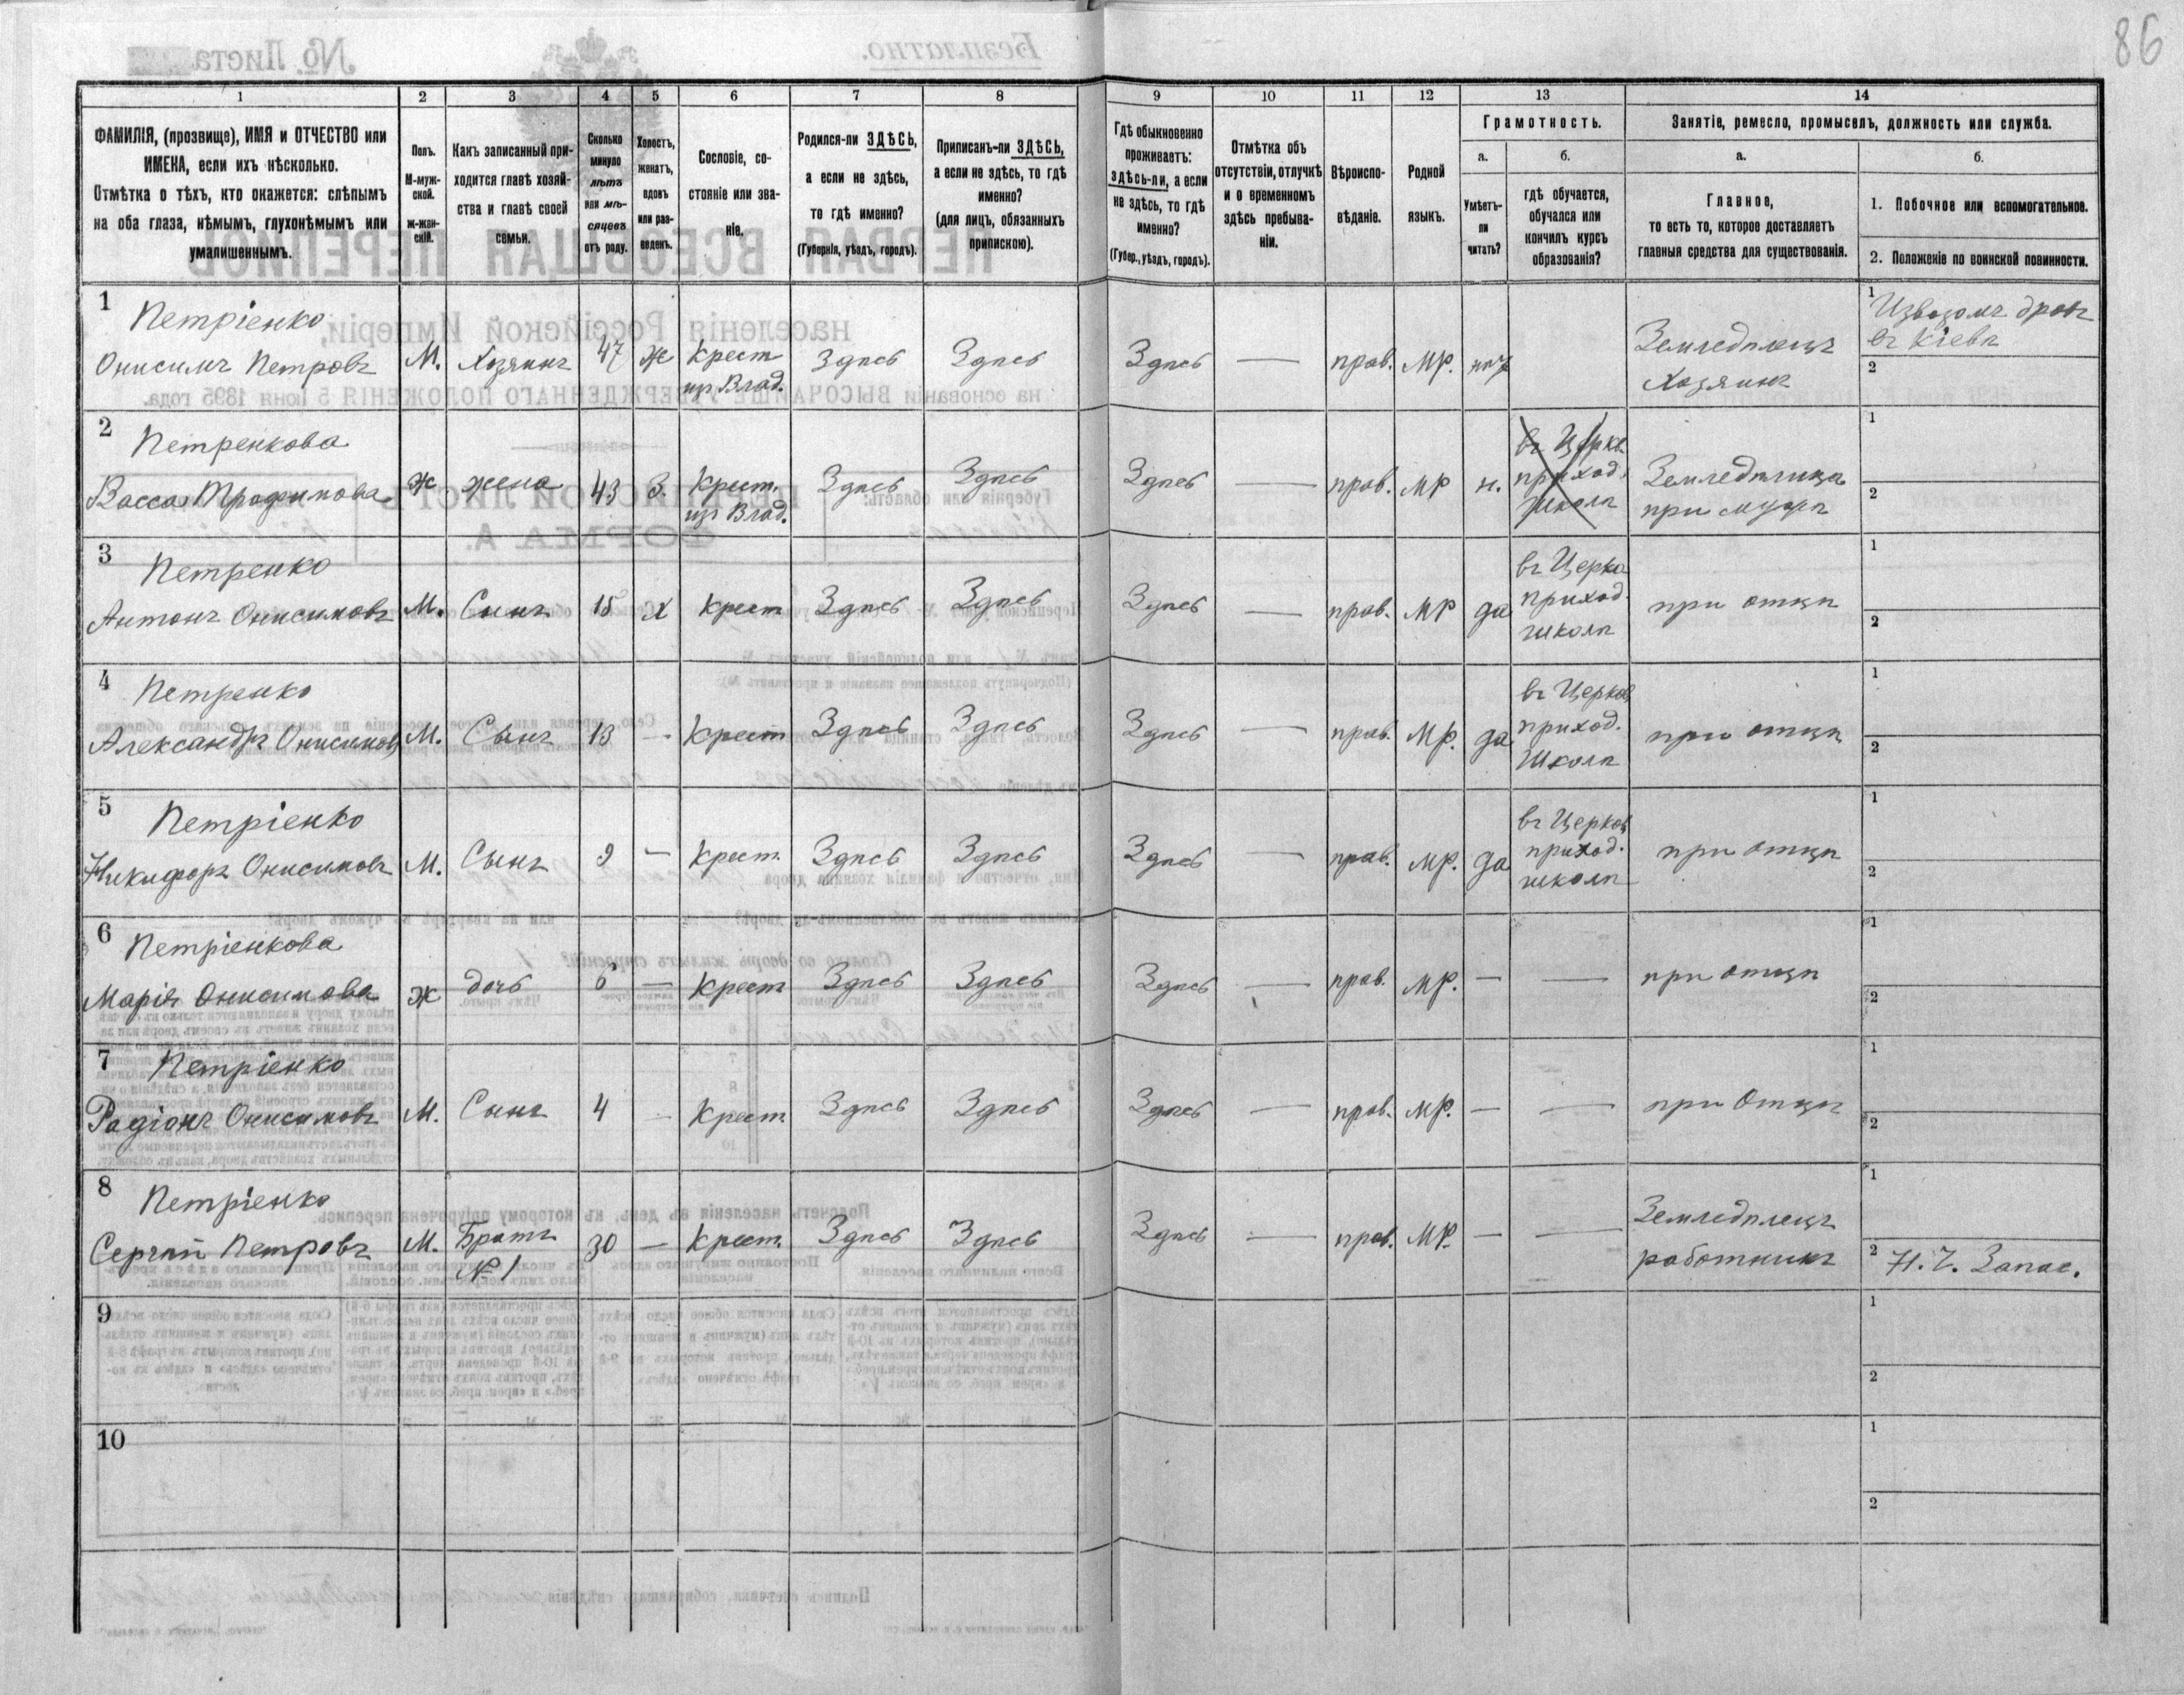 86
1
2
3
4
5
6
7
8
9
10
11
12
13
14
ФАМИЛІЯ, (прозвище), ИМЯ и ОТЧЕСТВО или
ИМЕНА, если ихъ нѣсколько.
Отмѣтка о тѣхъ, кто окажется: слѣпымъ
на оба глаза, нѣмымъ, глухонѣмымъ или
умалишеннымъ.
Полъ.
М-муж-
ской.
ж-жен-
скій.
Какъ записанный при-
ходится главѣ хозяй-
ства и главѣ своей
семьи.
Сколько
минуло
лѣтъ
или мѣ-
сяцевъ
отъ роду.
Холостъ,
женатъ,
вдовъ
или раз-
веденъ.
Сословіе, со-
стояніе или зва-
ніе.
Родился-ли ЗДѢСЬ,
а если не здѣсь,
то гдѣ именно?
(Губернія, уѣздъ, городъ).
Приписанъ-ли ЗДѢСЬ,
а если не здѣсь, то гдѣ
именно?
(для лицъ, обязанныхъ
припискою).
Гдѣ обыкновенно
проживаетъ:
здѣсь-ли, а если
не здѣсь, то гдѣ
именно?
(Губер., уѣздъ, городъ).
Отмѣтка объ
отсутствіи, отлучкѣ
и о временномъ
здѣсь пребыва-
ніи.
Вѣроиспо-
вѣданіе.
Родной
языкъ.
Грамотность.
а.
б.
Умѣетъ-
ли
читать?
гдѣ обучается,
обучался или
кончилъ курсъ
образованія?
Занятіе, ремесло, промыселъ, должность или служба.
а.
б.
Главное,
то есть то, которое доставляетъ
главныя средства для существованія.
1. Побочное или вспомогательное.
2. Положеніе по воинской повинности.
1 Петріенко
Онисимъ Петровъ М. Хозяинъ 47 Ж Крест Здѣсь Здѣсь Здѣсь — прав. МР. нѣт Земледѣлецъ
из Влад. Хозяинъ
1 Извозомъ дровъ
въ Кіевѣ
2
2 Петренкова
Васса Трофимова Ж жена 43 З. Крест. Здѣсь Здѣсь Здѣсь — прав. МР н. въ Церкв. Земледѣлица
из Влад. приход. при мужѣ
школѣ
1
2
3 Петренко
Антонъ Онисимовъ М. Сынъ 15 Х Крест Здѣсь Здѣсь Здѣсь — прав. МР да въ Церко при отцѣ
приход.
школѣ
1
2
4 Петренко
Александръ Онисимовъ М. Сынъ 13 — Крест Здѣсь Здѣсь Здѣсь — прав. МР. да въ Церков при отцѣ
приход.
школѣ
1
2
5 Петріенко
Никифоръ Онисимовъ М. Сынъ 9 — Крест. Здѣсь Здѣсь Здѣсь — прав. МР. да въ Церков при отцѣ
приход.
школѣ
1
2
6 Петріенкова
Марія Онисимова Ж дочь 6 — Крест Здѣсь Здѣсь Здѣсь — прав. МР. — — при отцѣ
1
2
7 Петріенко
Радіонъ Онисимовъ М. Сынъ 4 — Крест. Здѣсь Здѣсь Здѣсь — прав. МР. — — при Отцѣ
1
2
8 Петріенко
Сергій Петровъ М. Братъ 30 — Крест. Здѣсь Здѣсь Здѣсь — прав. МР. — — Земледѣлецъ
№ 1 работникъ
1
2 Н. Ч. Запас.
9
1
2
10
1
2